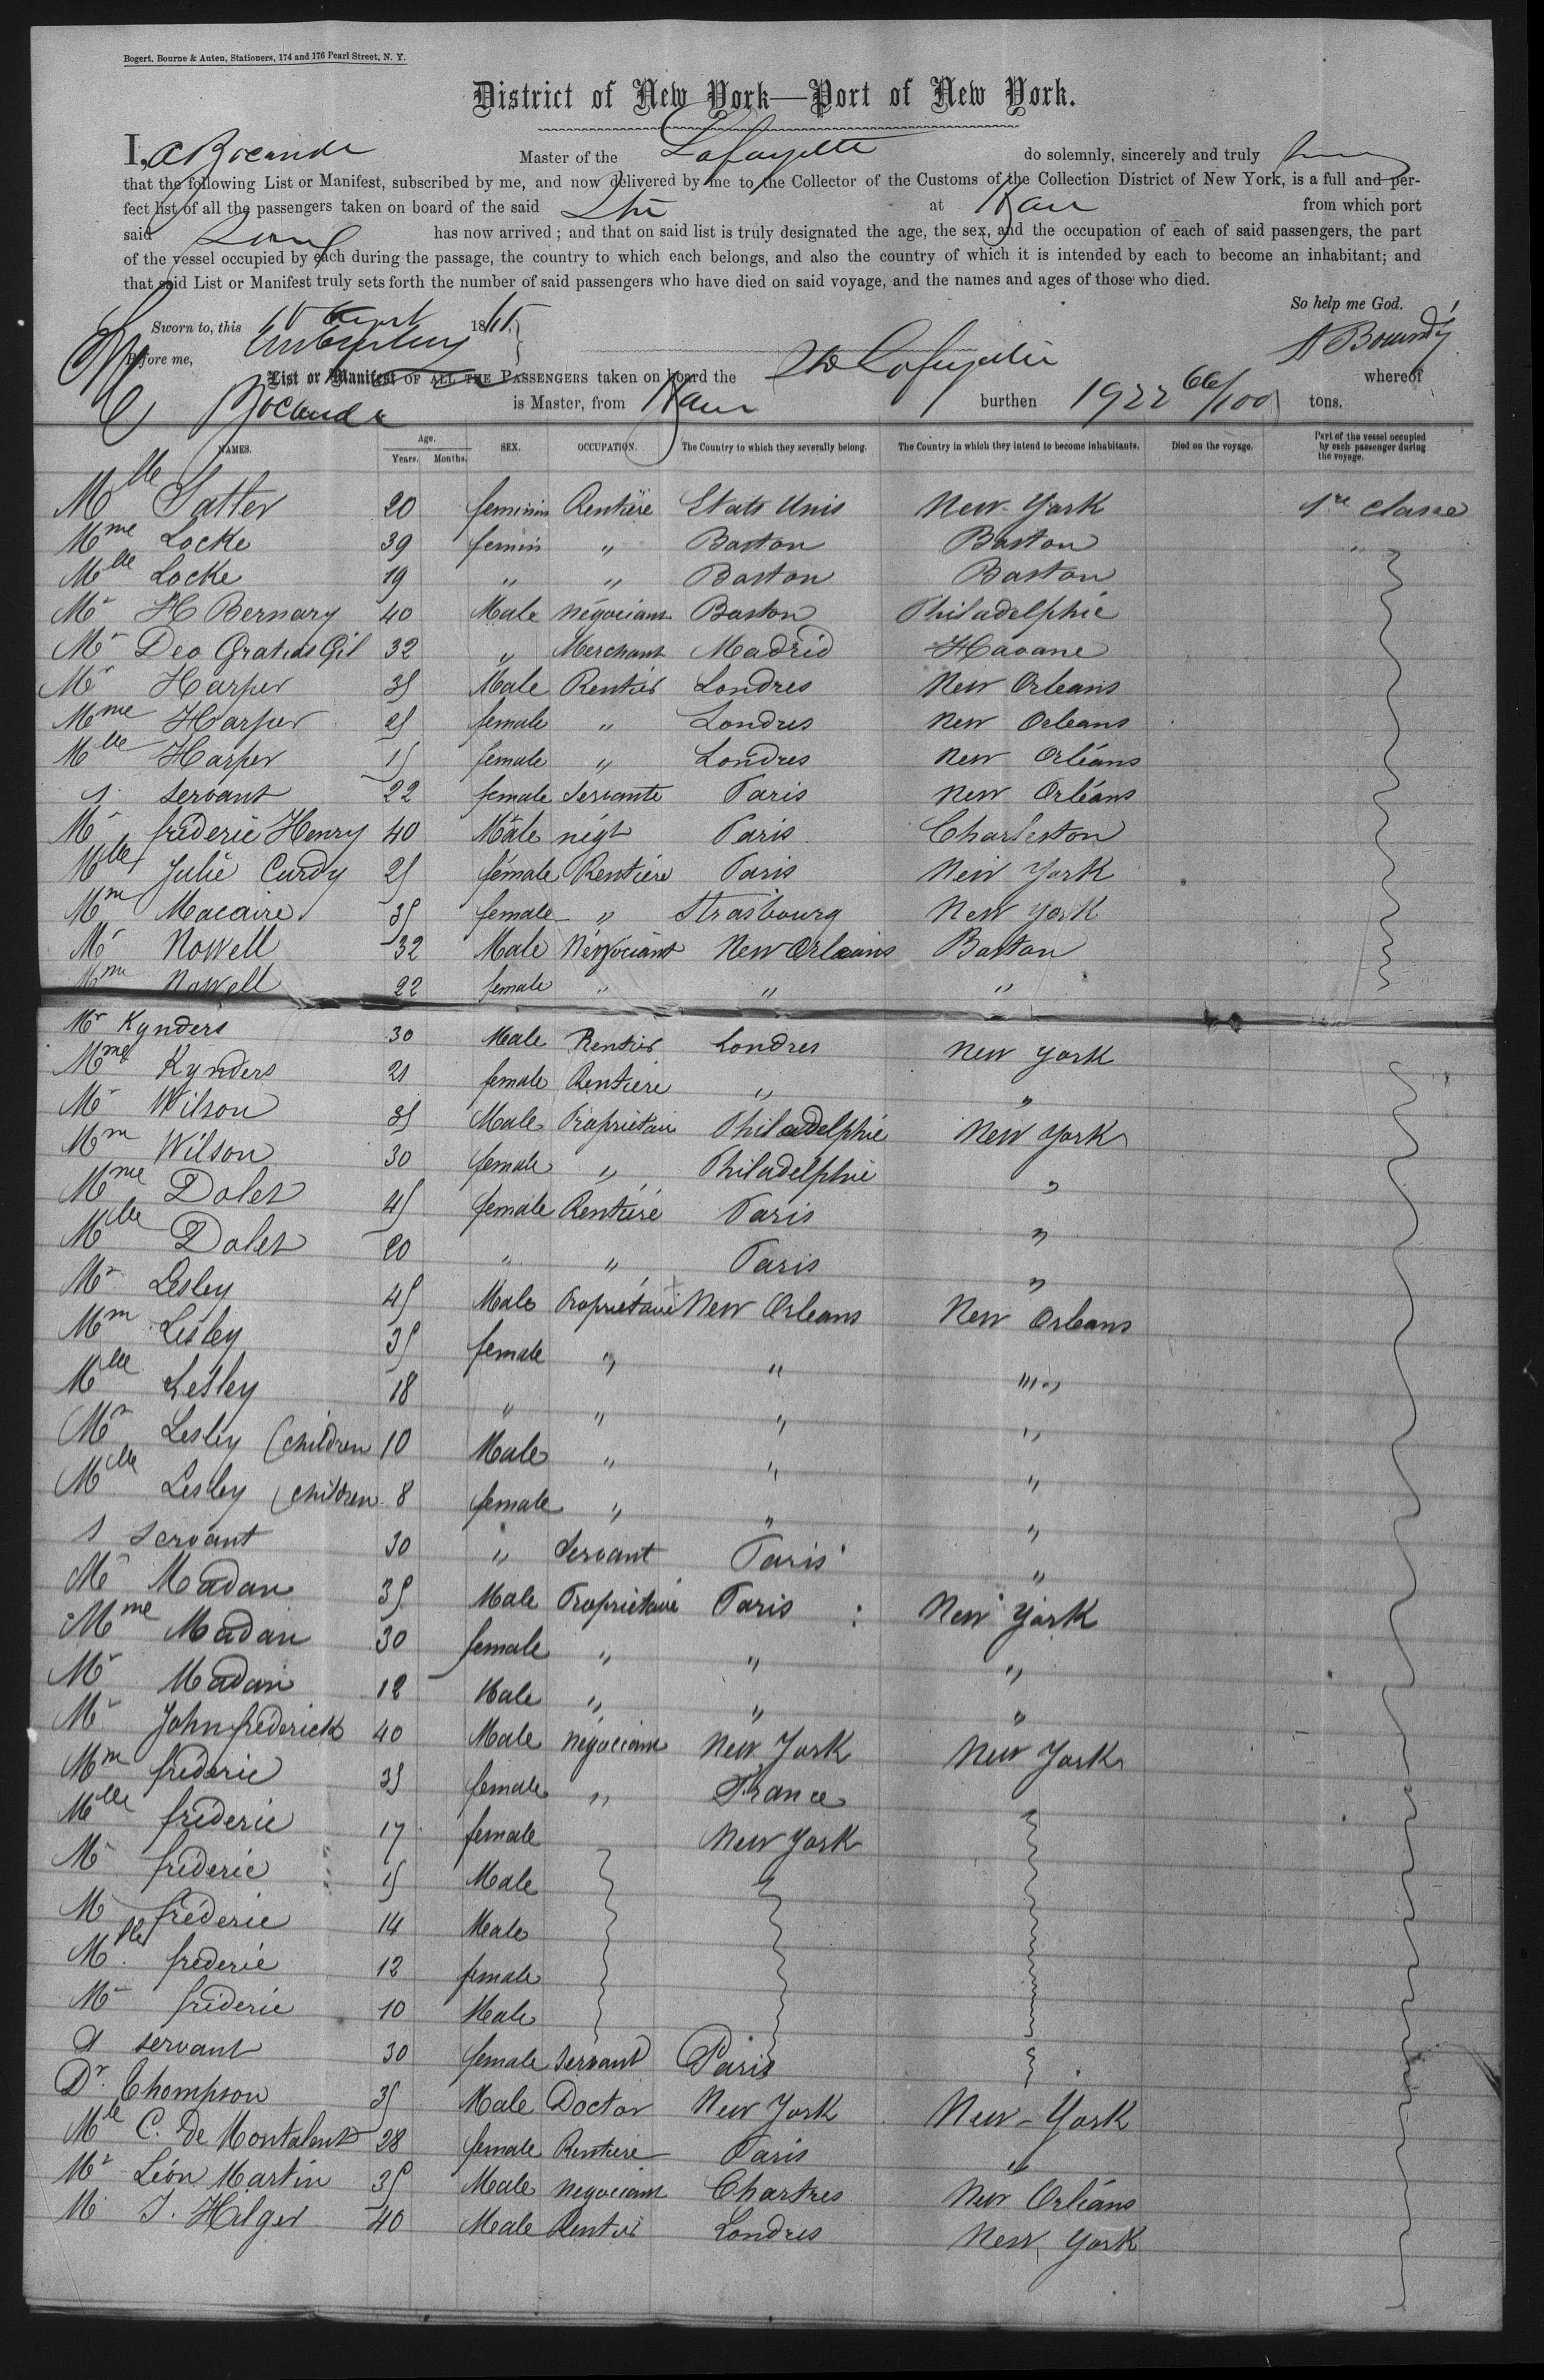 Bogert, Bourne & Auten, Stationers, 174 and 176 Pearl Street, N. Y.
District of New York—Port of New York.
I, A Bocandé Master of the Lafayette do solemnly, sincerely and truly
that the following List or Manifest, subscribed by me, and now delivered by me to the Collector of the Customs of the Collection District of New York, is a full and per-
fect list of all the passengers taken on board of the said at from which port
said has now arrived; and that on said list is truly designated the age, the sex, and the occupation of each of said passengers, the part
of the vessel occupied by each during the passage, the country to which each belongs, and also the country of which it is intended by each to become an inhabitant; and
that said List or Manifest truly sets forth the number of said passengers who have died on said voyage, and the names and ages of those who died.
So help me God.
Sworn to, this 18
Before me, A Bocandé
List or Manifest OF ALL THE PASSENGERS taken on board the Lafayette whereof
Bocandé is Master, from burthen 1922 66/100 tons.
NAMES. Age. Years. Months. SEX. OCCUPATION. The Country to which they severally belong. The Country in which they intend to become inhabitants. Died on the voyage. Part of the vessel occupied by each passenger during the voyage.
Mlle Satter 20 feminin Rentière Etats Unis New-York 1re classe
Mme Locke 39 femin " Boston Boston "
Mlle Locke 19 " " Boston Boston
Mr H Bernary 40 Male négociant Boston Philadelphie
Mr Deo Gratias Gil 32 " Merchant Madrid Havane
Mr Harper 35 Male Rentier Londres New Orleans
Mme Harper 25 female " Londres New Orleans
Mlle Harper 15 female " Londres New Orléans
1 servant 22 female servante Paris New Orléans
Mr fréderic Henry 40 Mâle négt Paris Charleston
Mlle Julie Curdy 25 fémale Rentière Paris New York
Mm Macaire 35 female " Strasbourg New York
Mr Nowell 32 Male Négociant New Orleans Boston
Mm Nowell 22 female " " "
Mr Kynders 30 Male Rentier Londres New York
Mme Kynders 21 female Rentiere " "
Mr Wilson 35 Male Propriétaire Philadelphie New York
Mm Wilson 30 female " Philadelphie "
Mme Dolet 45 female Rentière Paris "
Mlle Dolet 20 " " Paris "
Mr Lesley 45 Male Propriétaire New Orleans New Orleans
Mm Lesley 35 female " " "
Mlle Lesley 18 " " " "
Mr Lesley (children 10 Male " " "
Mlle Lesley (children 8 female " " "
1 servant 30 " Servant Paris "
Mr Madan 35 Male Propriétaire Paris : New York
Mme Madan 30 female " " "
Mr Madan 12 Male " " "
Mr John fréderick 40 Male négociant New York New York
Mm fréderic 35 female " France
Mlle fréderic 17 female New York
Mr fréderic 15 Male
M fréderic 14 Male
Mlle fréderic 12 female
Mr fréderic 10 Male
A servant 30 female servant Paris
Dr. Thompson 35 Male Doctor New York New-York
Mlle C. De Montalant 28 female Rentiere Paris "
Mr Léon Martin 35 Male negociant Chartres New Orléans
M. J. Hilger 40 Male Rentier Londres New York